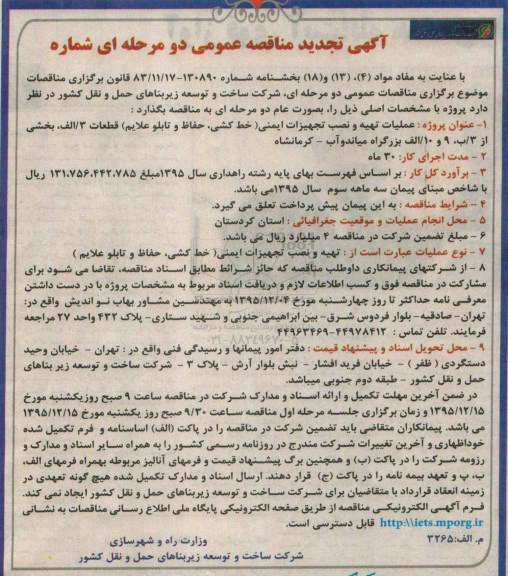 آگهی تجدید مناقصه عمومی دو مرحله ای شماره
با عنایت به مفاد مواد (۴)، (۱۳) و(۱۸) بخشنامه شماره ۱۳۰۸۹۰-۸۳/۱۱/۱۷ قانون برگزاری مناقصات
موضوع برگزاری مناقصات عمومی دو مرحله ای، شرکت ساخت و توسعه زیربناهای حمل و نقل کشور در نظر
دارد پروژه با مشخصات اصلی ذیل را، بصورت عام دو مرحله ای به مناقصه بگذارد :
۱- عنوان پروژه : عملیات تهیه و نصب تجهیزات ایمنی( خط کشی، حفاظ و تابلو علایم) قطعات ۳/الف، بخشی
از ۳/ب، ۹ و ۱۰/الف بزرگراه میاندوآب - کرمانشاه
۲ - مدت اجرای کار: ۳۰ ماه
۳ - برآورد کل کار : بر اساس فهرست بهای پایه رشته راهداری سال ۱۳۹۵مبلغ ۱۳۱،۷۵۶،۴۴۲،۷۸۵ ریال
با شاخص مبنای پیمان سه ماهه سوم سال ۱۳۹۵می باشد.
۴ - شرایط مناقصه : به این پیمان پیش پرداخت تعلق می گیرد.
۵ - محل انجام عملیات و موقعیت جغرافیائی : استان کردستان
۶ - مبلغ تضمین شرکت در مناقصه ۴ میلیارد ریال می باشد.
۷ - نوع عملیات عبارت است از : تهیه و نصب تجهیزات ایمنی( خط کشی، حفاظ و تابلو علایم )
۸ - از شرکتهای پیمانکاری داوطلب مناقصه که حائز شرائط مطابق اسناد مناقصه، تقاضا می شود برای
مشارکت در مناقصه فوق و کسب اطلاعات لازم و دریافت اسناد مربوط به مشخصات پروژه با در دست داشتن
معرفی نامه حداکثر تا روز چهارشنبه مورخ ۱۳۹۵/۱۲/۰۴ به مهندسین مشاور بهاب نو اندیش واقع در:
تهران- صادقیه- بلوار فردوس شرق- بین ابراهیمی جنوبی و شهید ستاری- پلاک ۴۳۲ واحد ۲۷ مراجعه
فرمایند. تلفن تماس : ۴۴۹۷۸۴۱۲-۴۴۹۶۳۴۶۹
۹ - محل تحویل اسناد و پیشنهاد قیمت : دفتر امور پیمانها و رسیدگی فنی واقع در : تهران - خیابان وحید
دستگردی ( ظفر ) - خیابان فرید افشار - نبش بلوار آرش - پلاک ۳ - شرکت ساخت و توسعه زیر بناهای
حمل و نقل کشور - طبقه دوم جنوبی میباشد.
در ضمن آخرین مهلت تکمیل و ارائه اسناد و مدارک شرکت در مناقصه ساعت ۹ صبح روزیکشنبه مورخ
۱۳۹۵/۱۲/۱۵ و زمان برگزاری جلسه مرحله اول مناقصه ساعت ۹/۳۰ صبح روز یکشنبه مورخ ۱۳۹۵/۱۲/۱۵
می باشد. پیمانکاران متقاضی باید تضمین شرکت در مناقصه را در پاکت (الف) اساسنامه و فرم تکمیل شده
خوداظهاری و آخرین تغییرات شرکت مندرج در روزنامه رسمی کشور را به همراه سایر اسناد و مدارک و
رزومه شرکت را در پاکت (ب) و همچنین برگ پیشنهاد قیمت و فرمهای آنالیز مربوطه بهمراه فرمهای الف،
ب، پ و تعهد بیمه نامه را در پاکت (ج) قرار دهند. ارسال اسناد و مدارک تکمیل شده هیچ گونه تعهدی در
زمینه انعقاد قرارداد با متقاضیان برای شرکت ساخت و توسعه زیربناهای حمل و نقل کشور ایجاد نمی کند.
فرم آگهی الکترونیکی مناقصه از طریق صفحه الکترونیکی پایگاه ملی اطلاع رسانی مناقصات به نشانی
http:\\iets.mporg.ir قابل دسترسی است.
م. الف:۳۲۶۵
وزارت راه و شهرسازی
شرکت ساخت و توسعه زیربناهای حمل و نقل کشور